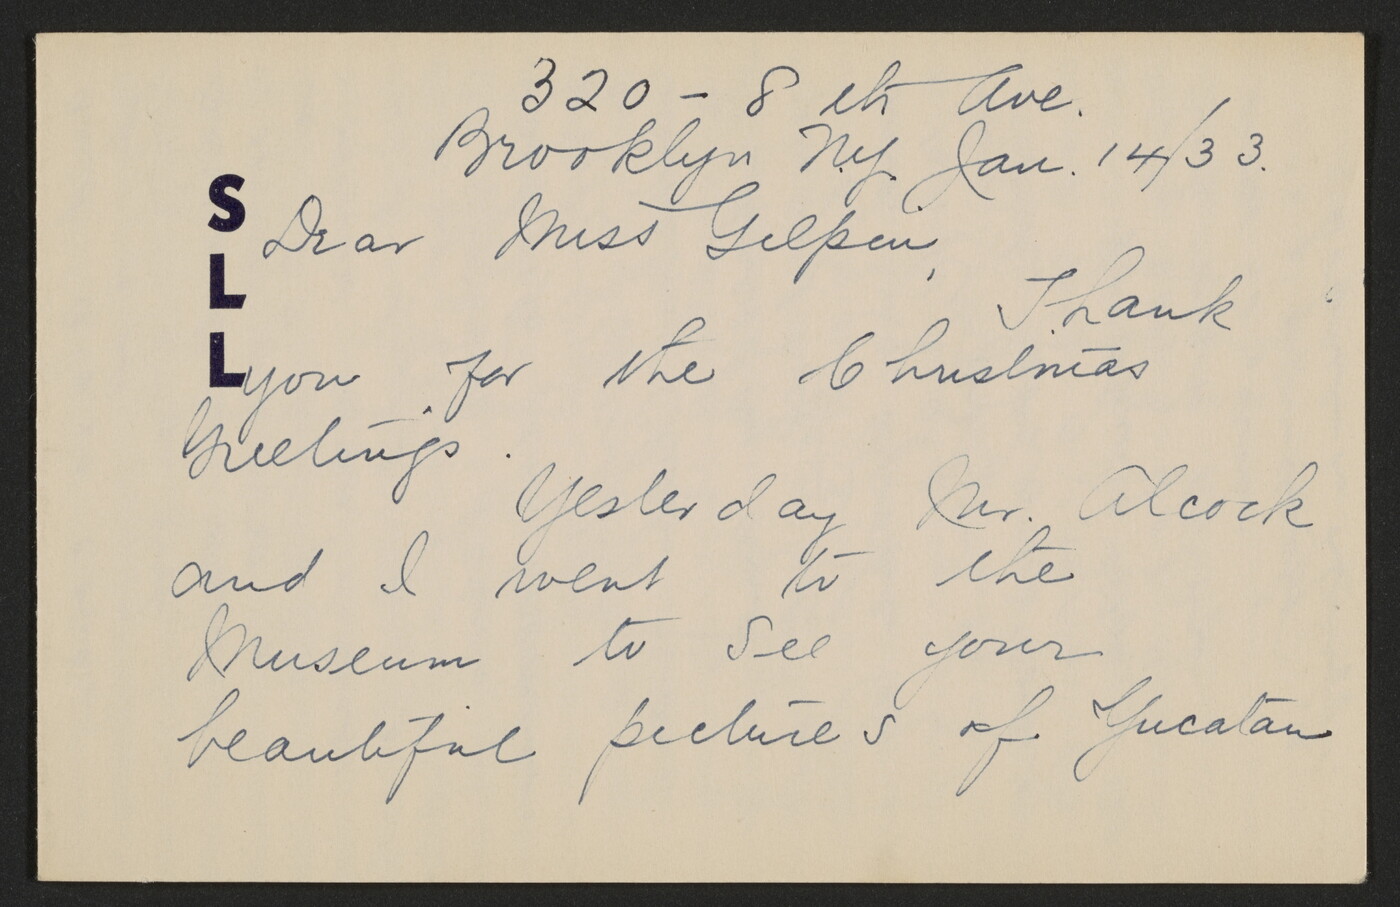 320 - 8 th Ave.
Brooklyn N.Y. Jan. 14/33.
S
L
L
Dear Miss Gilpin,
Thank
you for the Christmas
Greetings.
Yesterday Mr. Alcock
and I went to the
Museum to see your
beautiful pictures of Yucatan